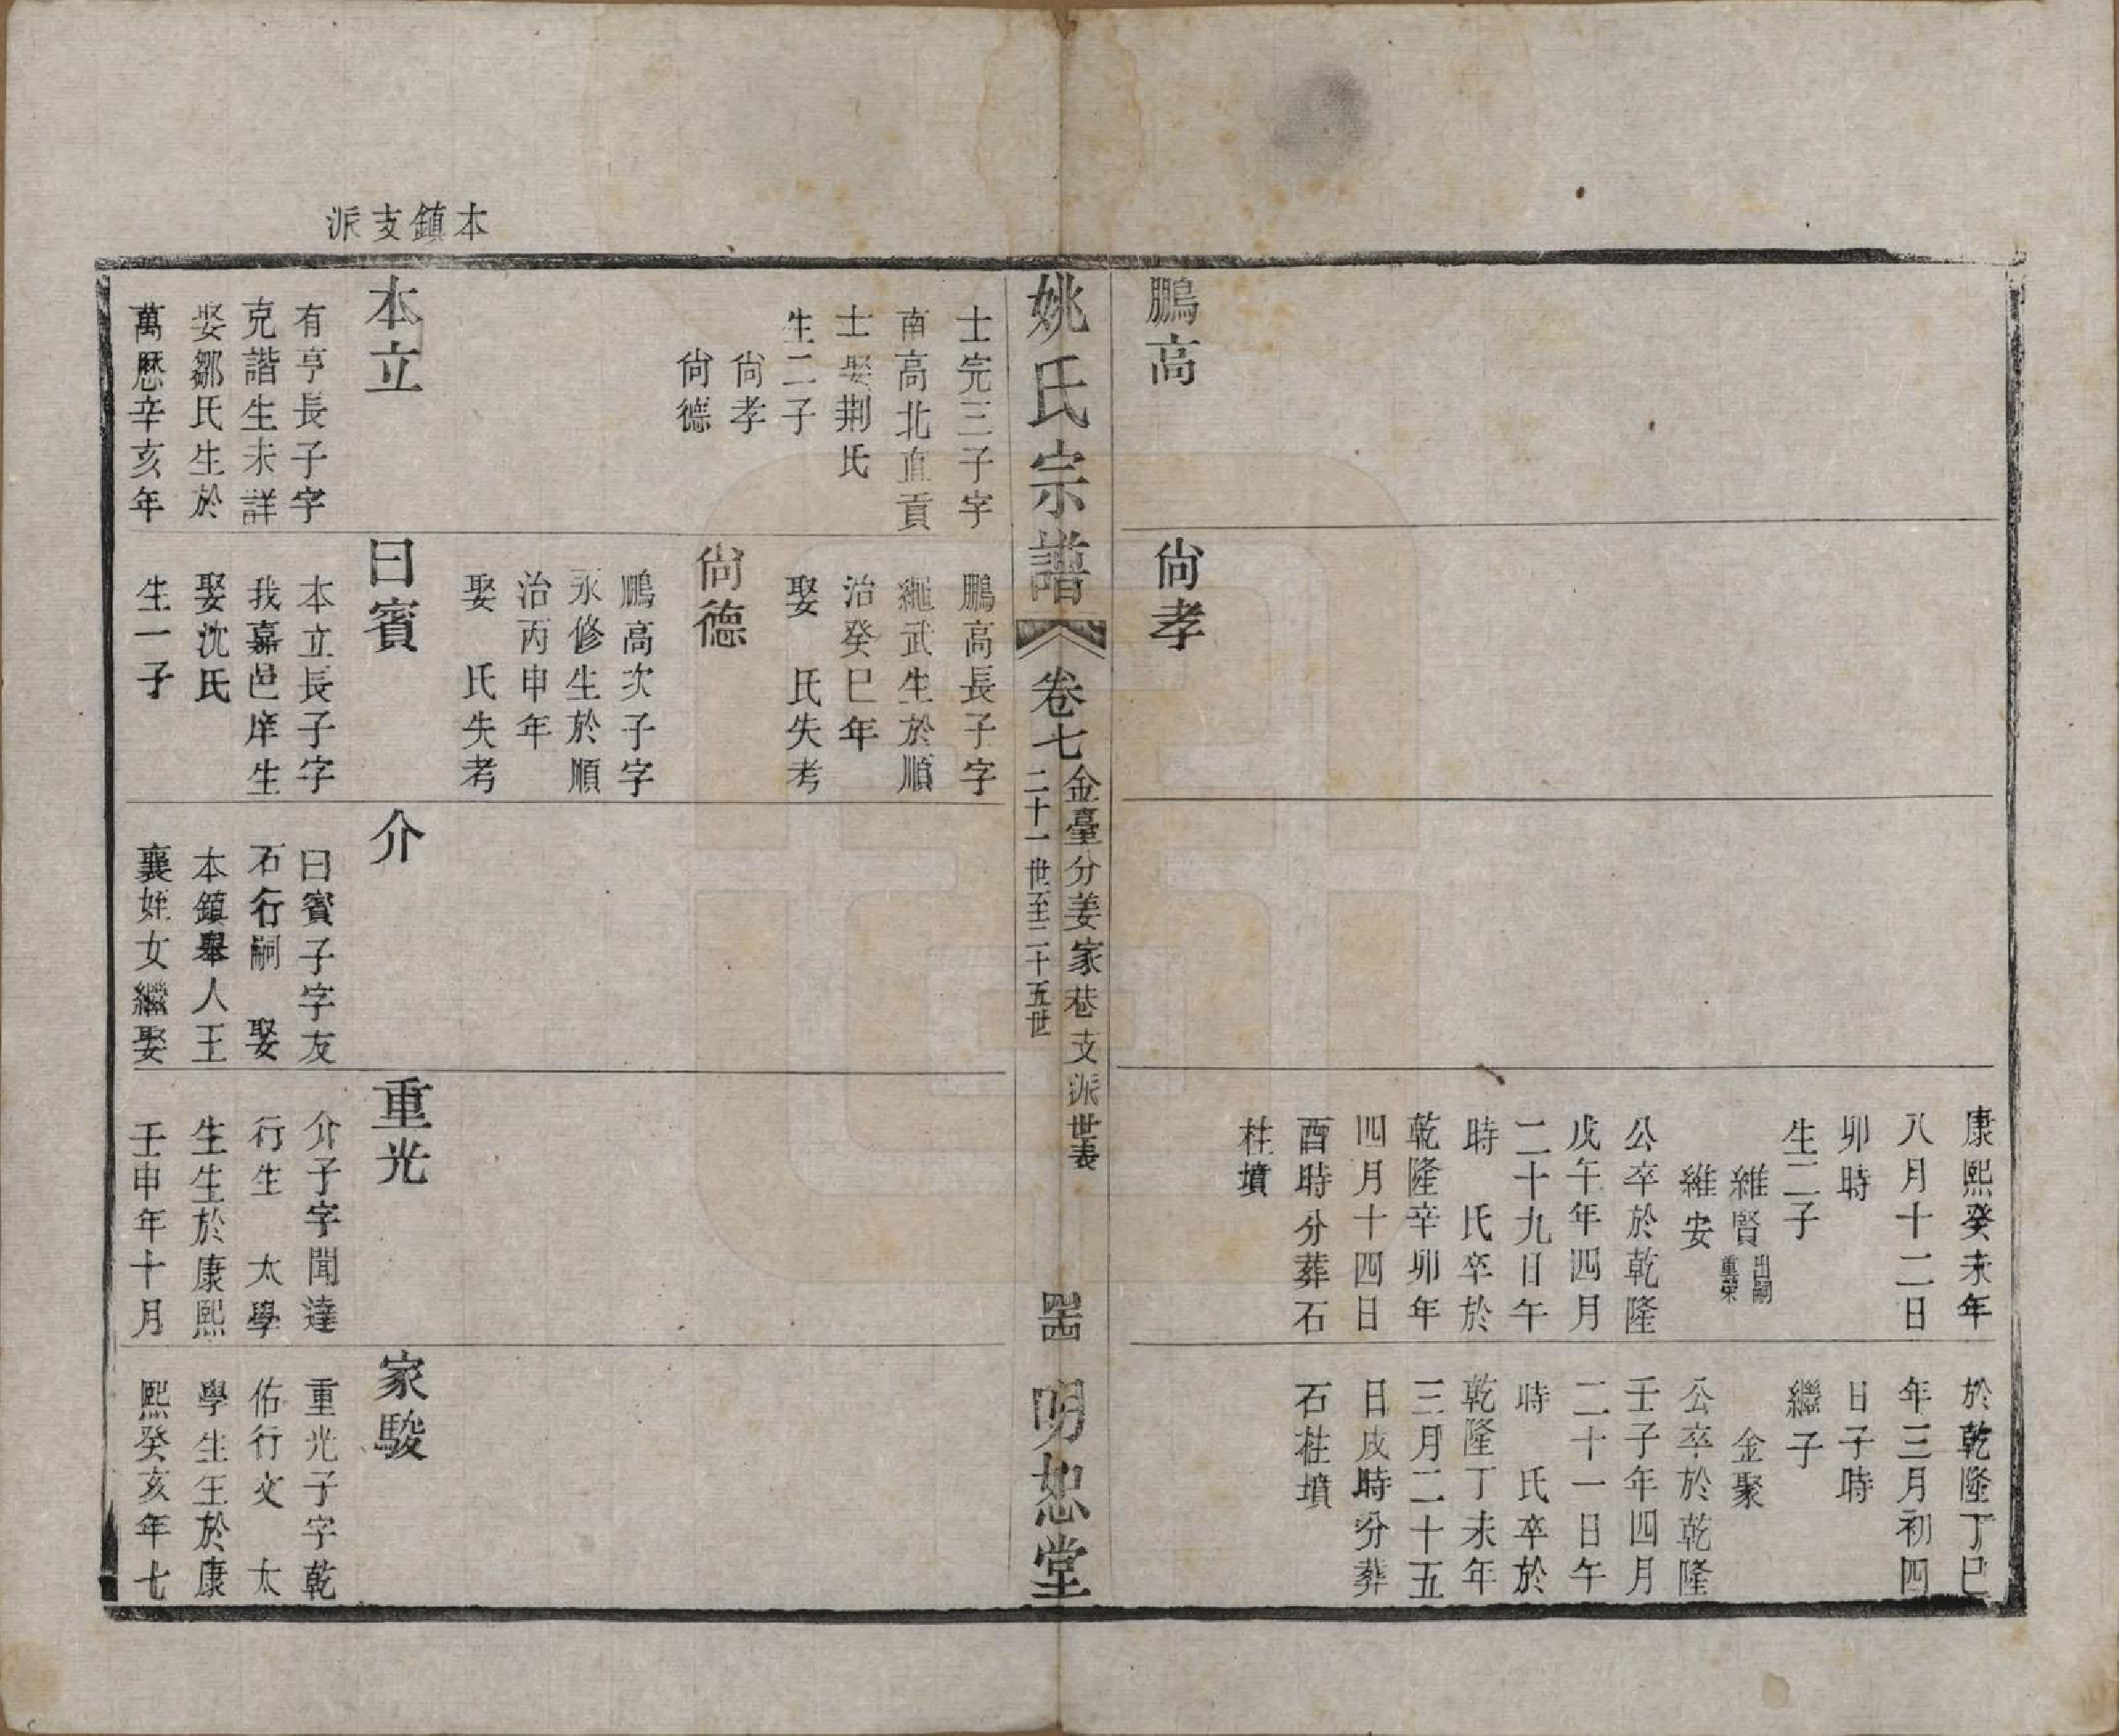 鵬高
尙孝
康熙癸未年
八月十二日
卯時
生二子
維賢出嗣重榮
維安
公卒於乾隆
戊午年四月
二十九日午
時　氏卒於
乾隆辛卯年
四月十四日
酉時分葬石
柱墳
於乾隆丁巳
年三月初四
日子時
繼子
金聚
公卒於乾隆
壬子年四月
二十一日午
時　氏卒於
乾隆丁未年
三月二十五
日戌時分葬
石柱墳
姚氏宗譜
卷七
金臺分姜家巷支派世表
二十一世至二十五世
四十四
明恕堂
本鎮支派
士完三子字
南高北直貢
士娶荆氏
生二子
尙孝
尙德
本立
有亨長子字
克諧生未詳
娶鄒氏生於
萬厯辛亥年
鵬高長子字
繩武生於順
治癸巳年
娶　氏失考
尙德
鵬高次子字
永修生於順
治丙申年
娶　氏失考
曰賓
本立長子字
我嘉邑庠生
娶沈氏
生一子
介
曰賓子字友
石行嗣　娶
本鎮舉人王
襄姪女繼娶
重光
介子字聞達
行生　太學
生生於康熙
壬申年十月
家駿
重光子字乾
佑行文　太
學生生於康
熙癸亥年七